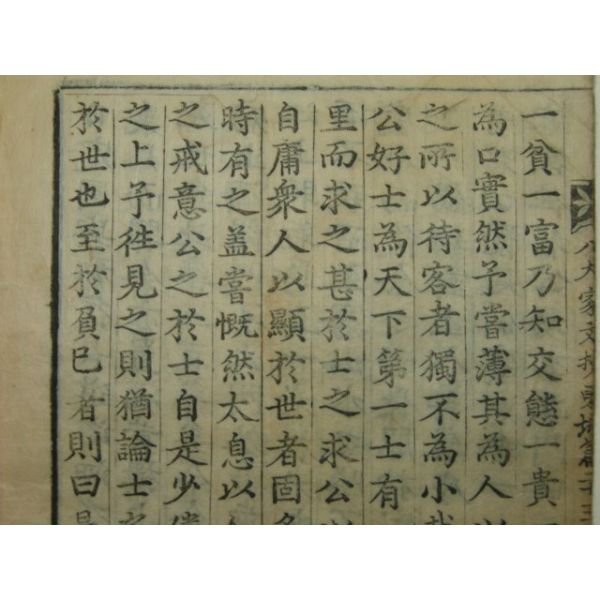 八大家文抄東坡篇二十三
一貧一富乃知交態一貴
為口實然予嘗薄其為人以
之所以待客者獨不為小哉
公好士為天下第一士有
里而求之甚於士之求公以
自庸衆人以顯於世者固多
時有之盖嘗慨然太息以人
之戒意公之於士自是少倦
之上予徃見之則猶論士之
於世也至於負已者則曰是